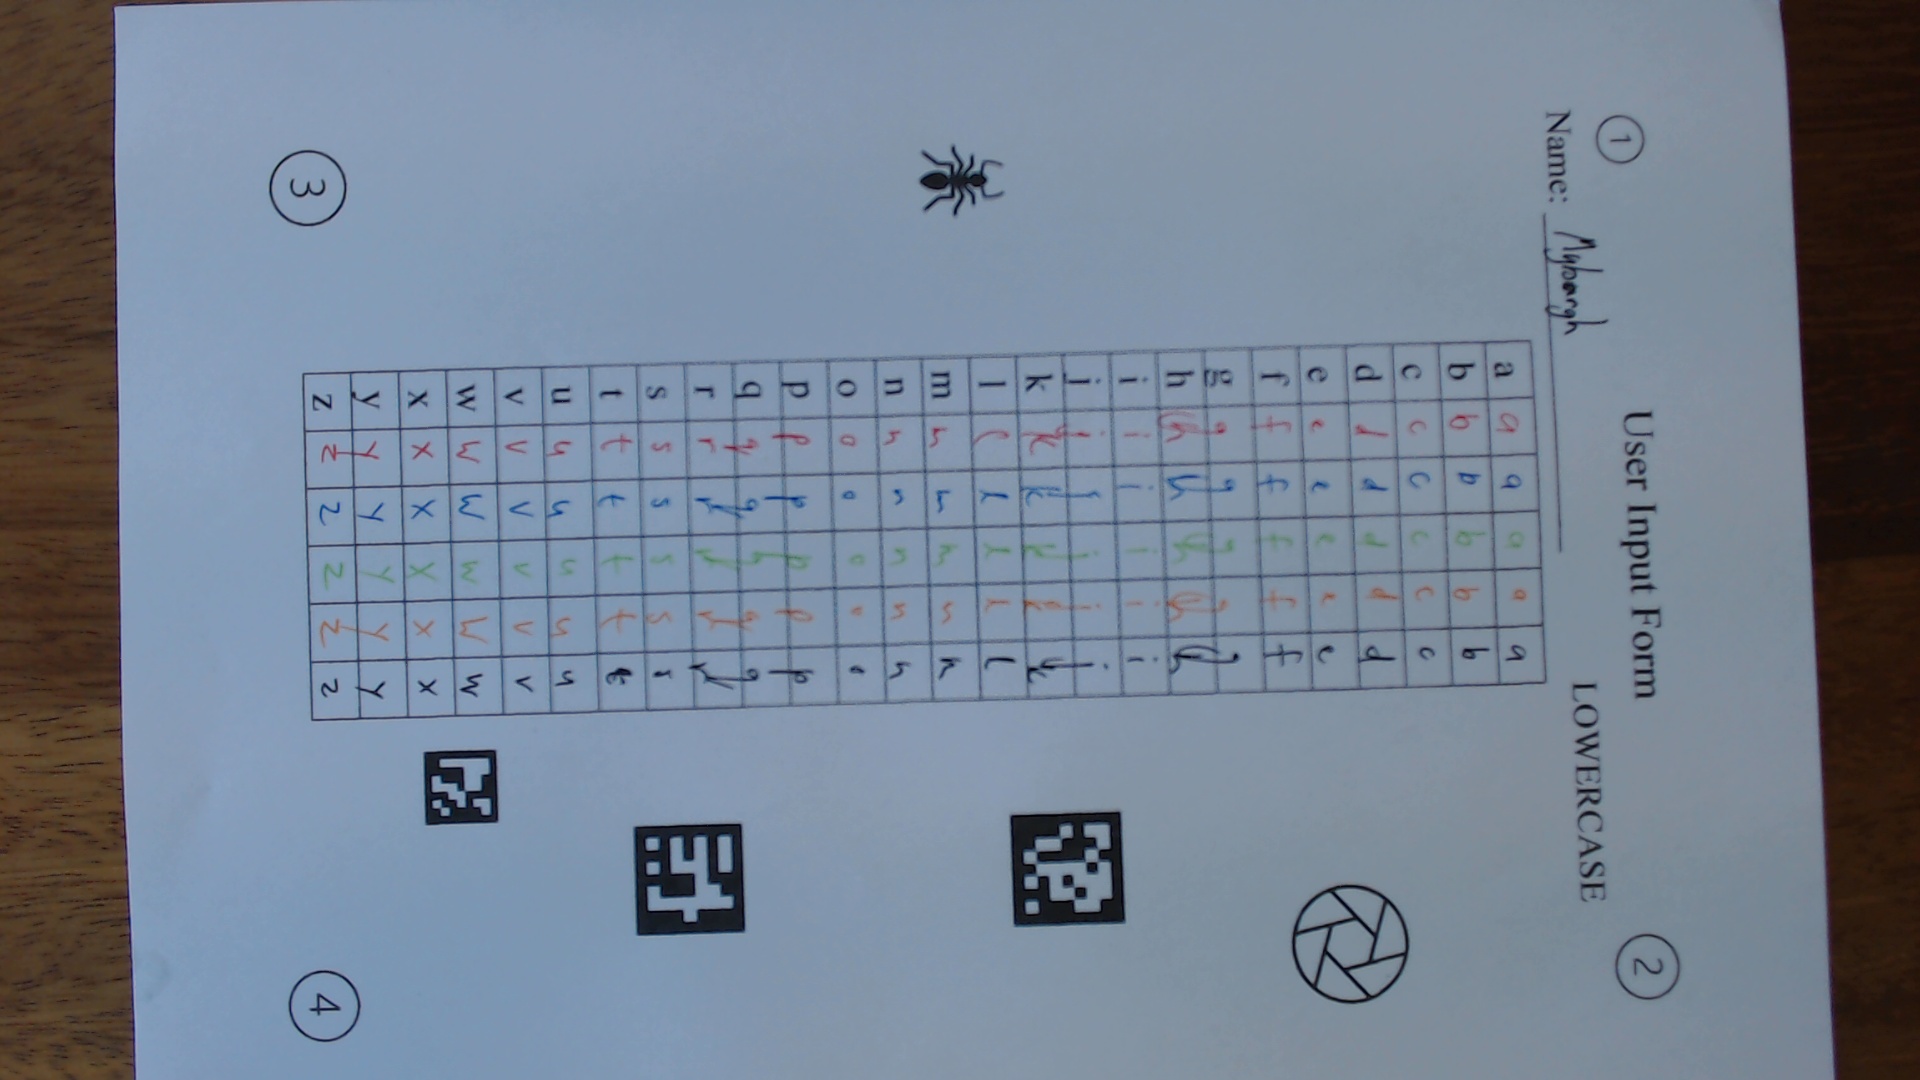 1
User Input Form
2
Name:
LOWERCASE
a a a a a a
b b b b b b
c c c c c c
d d d d d d
e e e e e e
f f f f f f
g g g g g g
h h h h h h
i i i i i i
j j j j j j
k k k k k k
l l l l l l
m m m m m m
n n n n n n
o o o o o o
p p p p p p
q q q q q q
r r r r r r
s s s s s s
t t t t t t
u u u u u u
v v v v v v
w w w w w w
x x x x x x
y y y y y y
z z z z z z
3
4